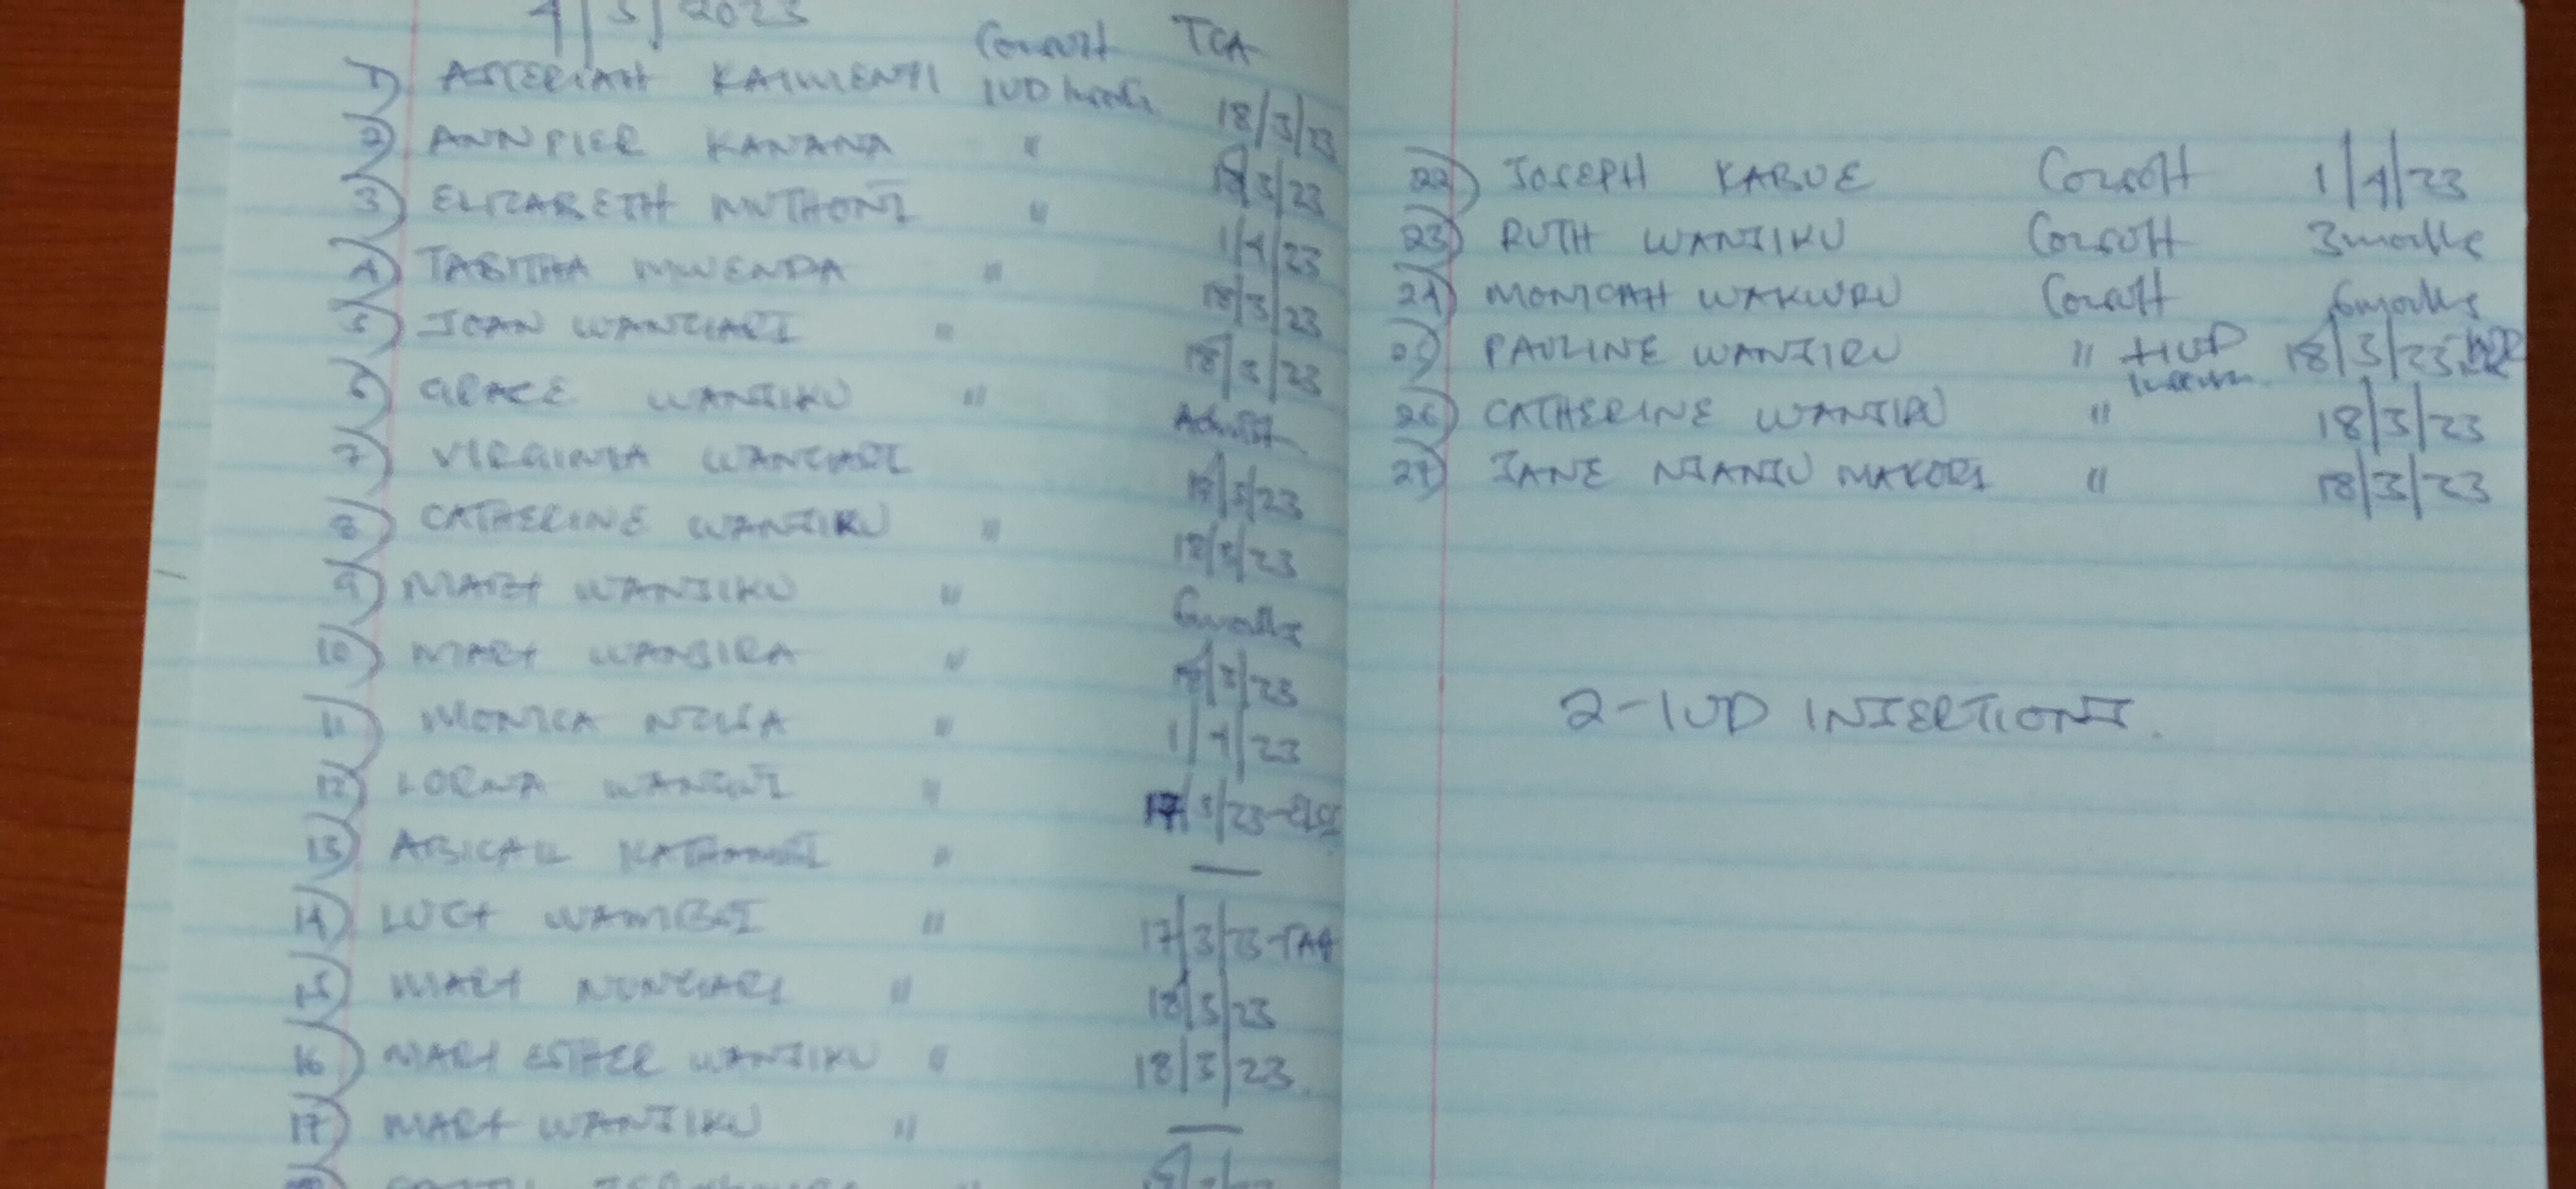 4/3/2023
Consult TCA
1) ASTERIAH KAIMENYI IUD 18/3/23
2) ANNPIER KANANA " 18/3/23
3) ELIZABETH MUTHONI " 1/4/23
4) TABITHA MWENDA " 18/3/23
5) JOAN WANGARI " 18/3/23
6) GRACE WANJIKU " Admit
7) VIRGINIA WANGARI 18/3/23
8) CATHERINE WANJIRU " 18/3/23
9) MARY WANJIKU " 6months
10) MARY WANJIRA " 18/3/23
11) MONICA " 1/4/23
12) LORNA WANGUI " 17/3/23-
13) ABIGAIL " —
14) LUCY WAMBUI " 17/3/23-
15) MARY NUNGARI " 18/3/23
16) MARY ESTHER WANJIKU " 18/3/23
17) MARY WANJIKU " —
22) JOSEPH KABUE Consult 1/4/23
23) RUTH WANJIKU Consult 3months
24) MONICAH WAKWURU Consult 6months
25) PAULINE WANJIRU " +IUD 18/3/23
26) CATHERINE WANJIRU " 18/3/23
27) JANE NJANJU MAKORI " 18/3/23
2-IUD INSERTIONS.